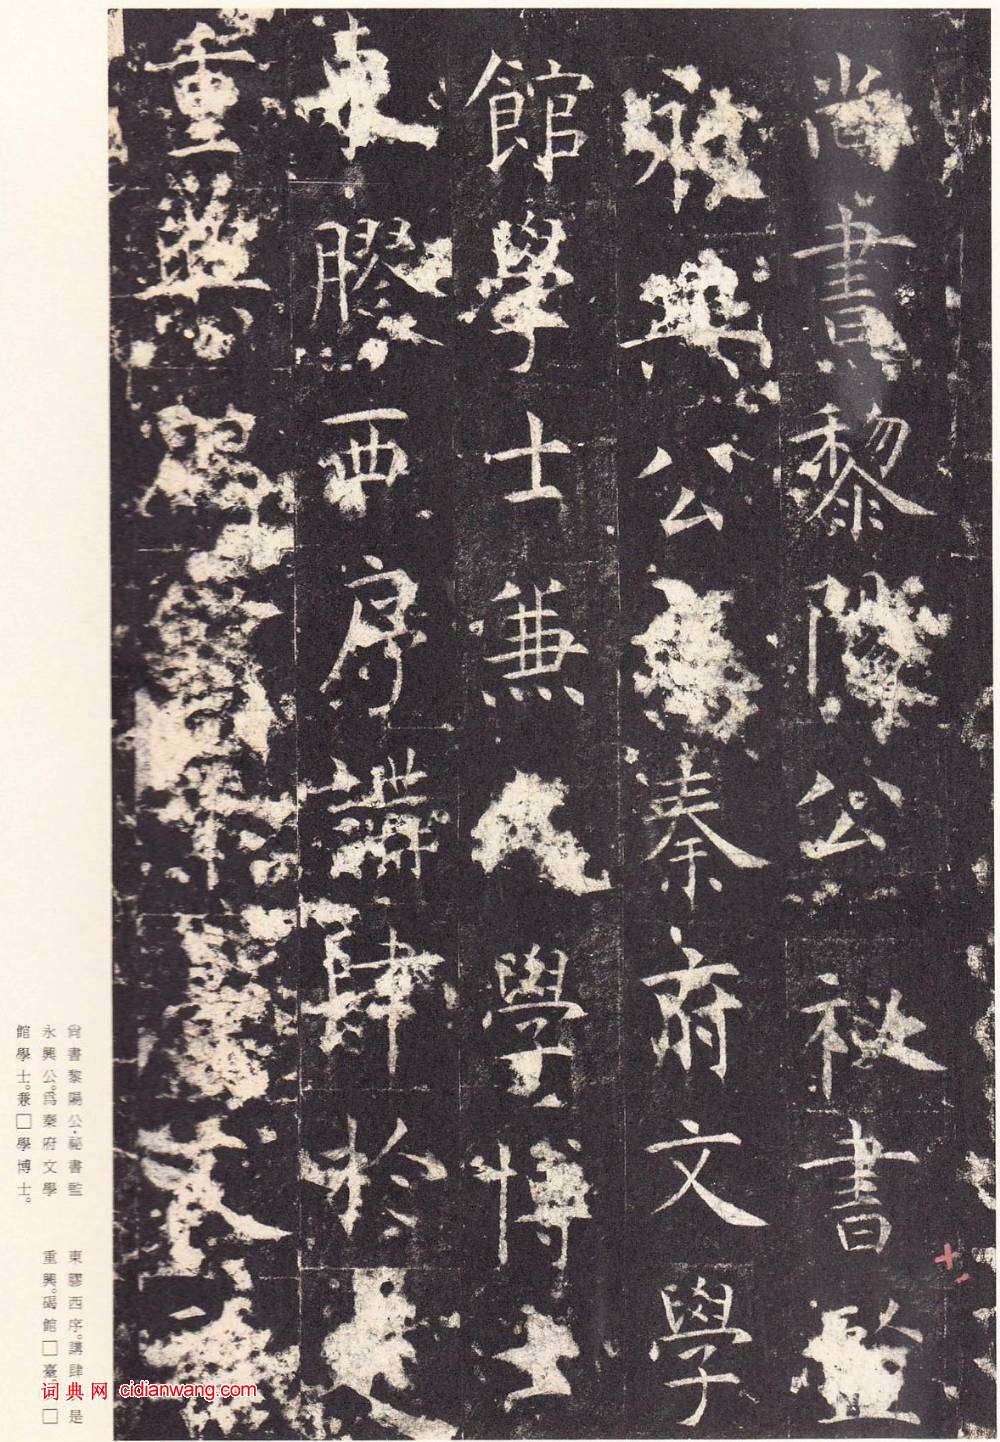 尚書黎陽公祕書監
永興公爲秦府文學
館學士兼學博士
東膠西序講肆於是
重興碣
尙書黎陽公·祕書監
永興公。爲秦府文學
館學士。兼□學博士。
東膠西序。講肆是
重興。碣館□臺□
词典网 cidianwang.com